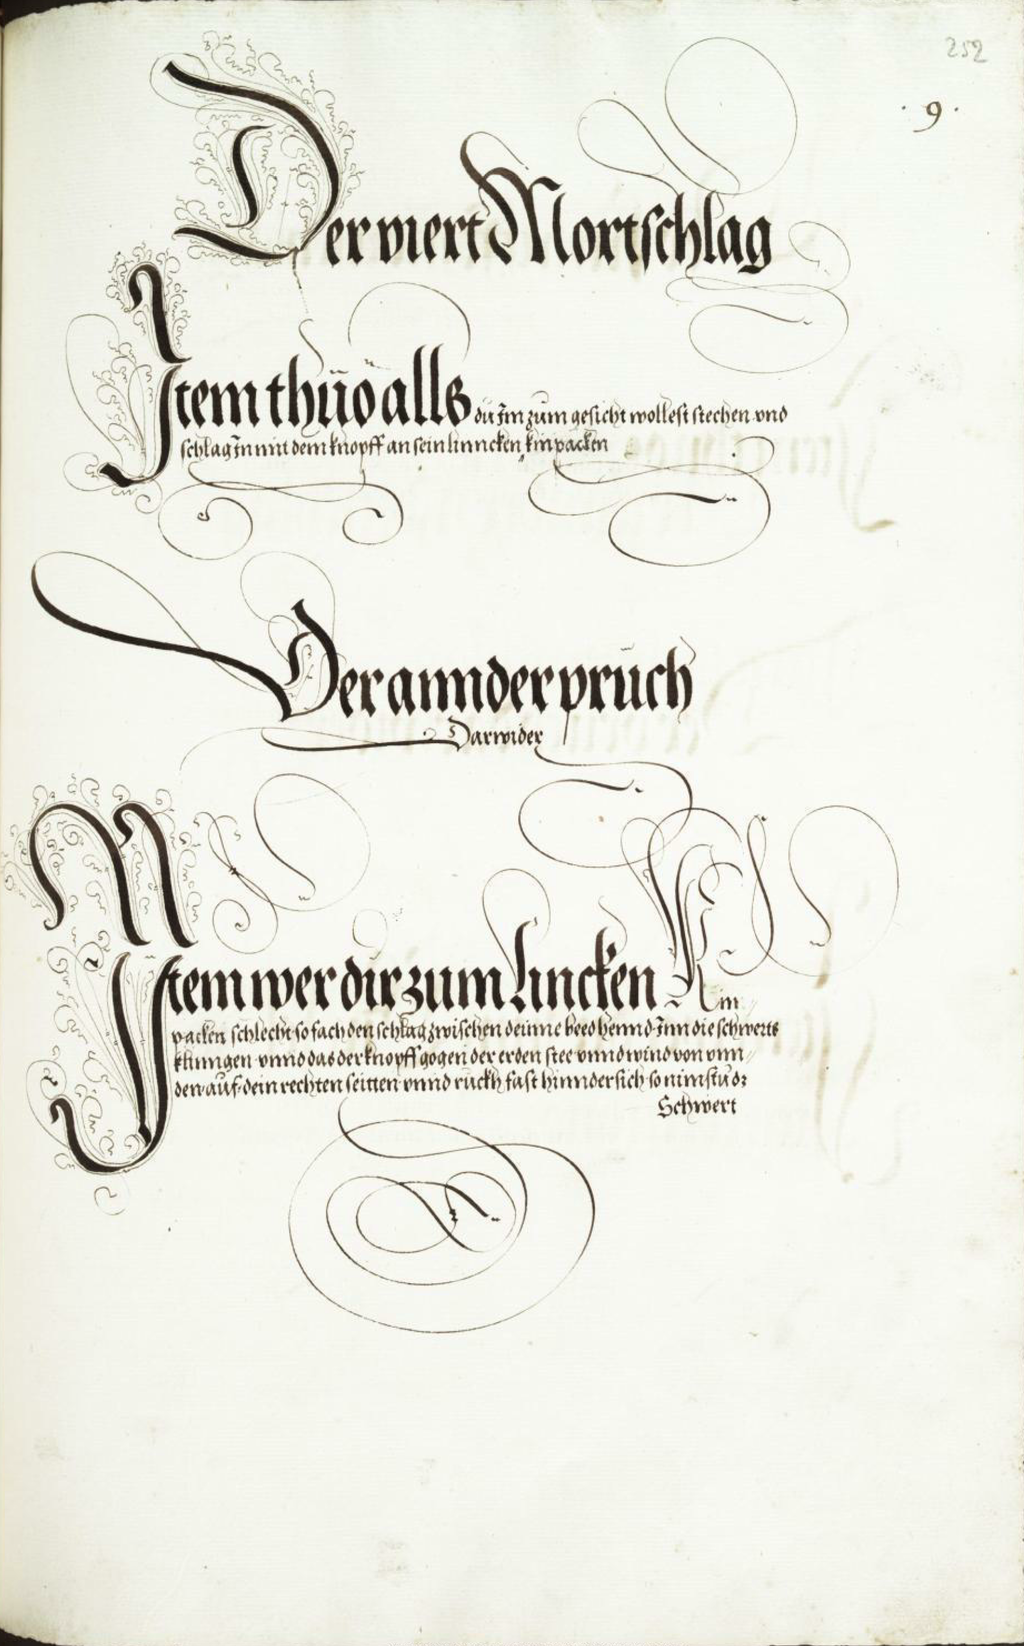 252
· 9 ·
Der viert Mortschlag
Item thüo alls du Im zum gesicht wollest stechen vnd
schlag In mit dem knopff an sein linncken kinpacken
Der annder pruch
Darwider
Item wer dir zum lincken Kin
packen schlecht so fach den schlag zwischen deinne beed hennd Inn die schwerts
klinngen vnnd das der knopff gogen der erden stee vnnd wind von vnn
den auf dein rechten seitten vnnd ruckh fast hinndersich so nimstu dz
Schwert